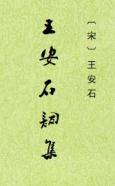 王安石詞集
〔宋〕王安石